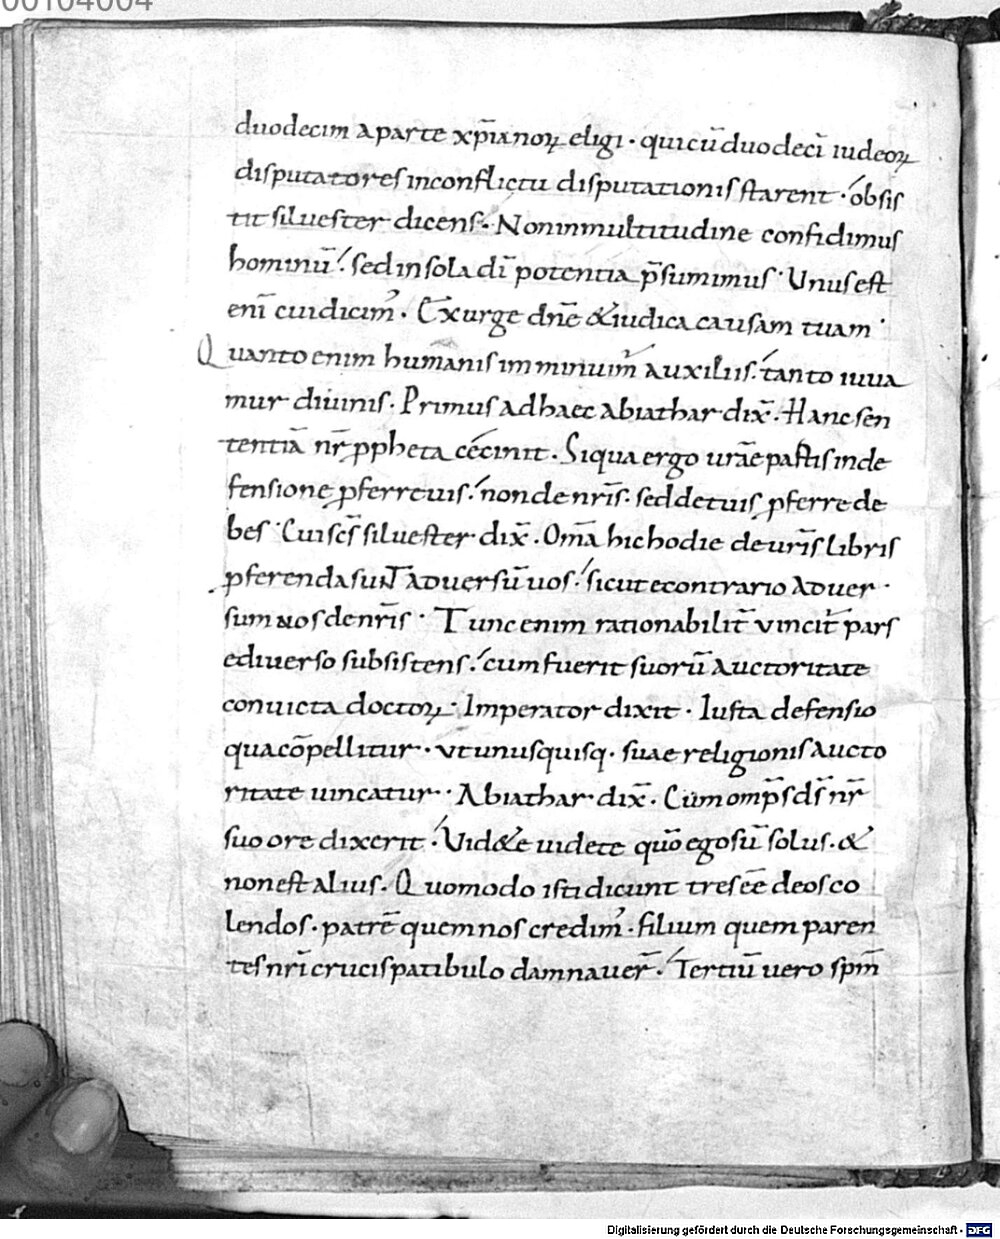 00104004
duodecim a parte xp̄ianoꝝ eligi · qui cū duodecī iudeoꝝ
disputatores in conflictu disputationis starent · obsis
tit siluester dicens · Non in multitudine confidimus
hominū · sed in sola dī potentia p̄sumimus · Unus est
enī cui dicim᾽ · Exurge dn̄e & iudica causam tuam ·
Quanto enim humanis imminuim᾽ auxiliis · tanto iuua
mur diuinis · Primus ad haec abiathar dix̄ · Hanc sen
tentiā nr̄ ꝓpheta cecinit · Siqua ergo urāe partis in de
fensione ꝓferre uis · non de nr̄is · sed de tuis ꝓferre de
bes · Cui sc̄s siluester dix̄ · Om̄a hic hodie de ur̄is libris
ꝓferenda sunt aduersū uos · sicut e contrario aduer
sum nos de nr̄is · Tunc enim rationabilit̄ vincit̄ pars
e diuerso subsistens · cum fuerit suorū auctoritate
conuicta doctoꝝ · Imperator dixit · Iusta defensio
qua cōpellitur · ut unusquisq· suae religionis aucto
ritate uincatur · Abiathar dix̄ · Cū omp̄s d̄s nr̄
suo ore dixerit · Uid&e uidete quō ego sū solus · &
non est alius · Quomodo isti dicunt tres eē deos co
lendos · patrē quem nos credim᾽ · filium quem paren
tes nr̄i crucis patibulo damnauer̄ · Tertiū uero spm̄
Digitalisierung gefördert durch die Deutsche Forschungsgemeinschaft - DFG